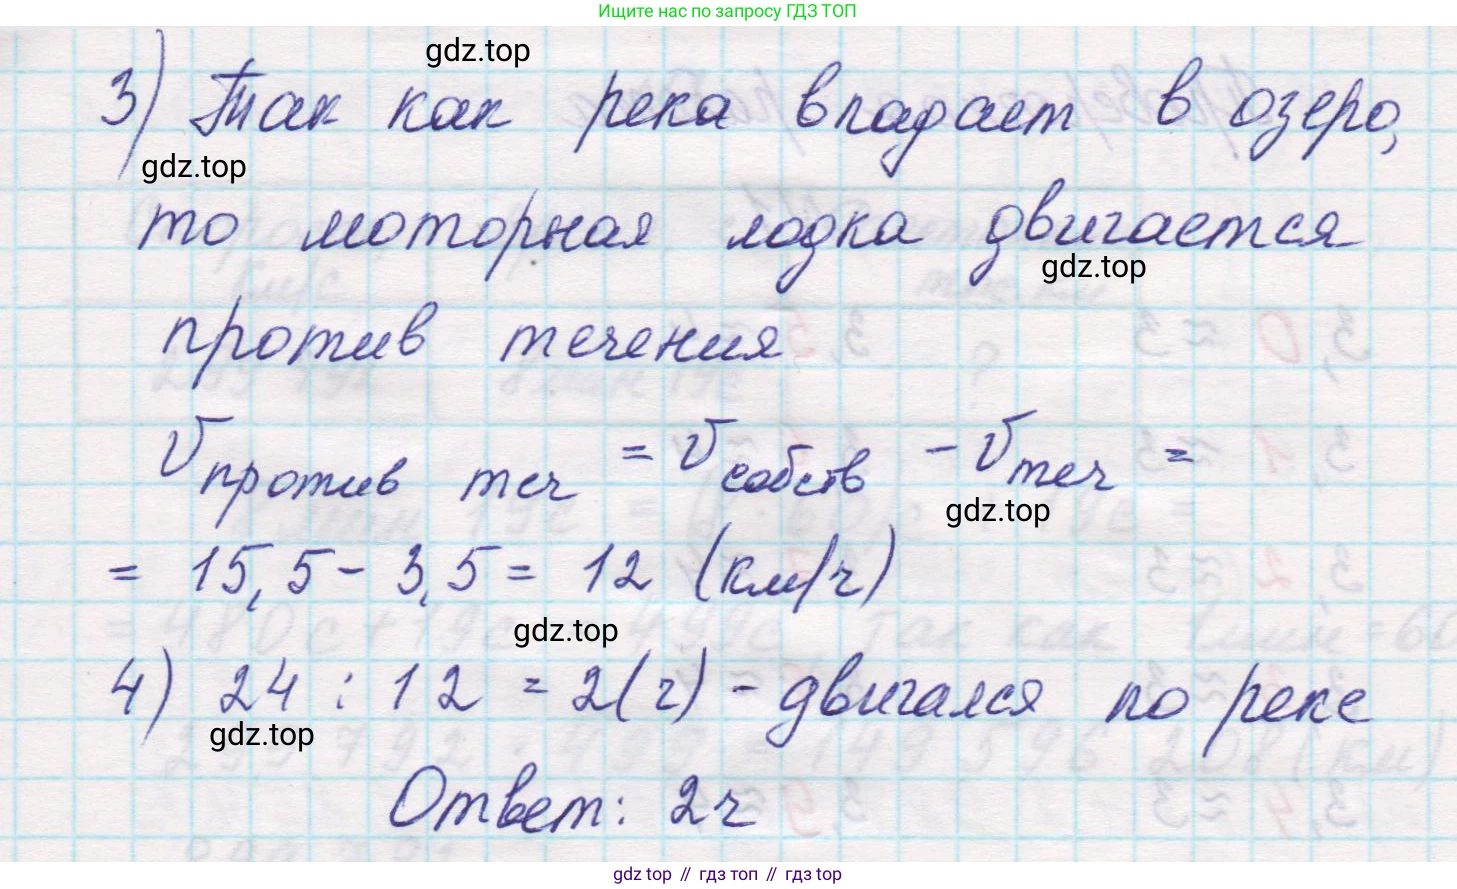 Ищите нас по запросу ГДЗ ТОП
gdz.top
3) Так как река впадает в озеро,
gdz.top
то моторная лодка двигается
gdz.top
против течения
v против теч = v собств - v теч =
gdz.top
= 15,5 - 3,5 = 12 (км/ч)
gdz.top
4) 24 : 12 = 2(ч) - двигался по реке
gdz.top
Ответ: 2ч
gdz top // гдз топ // гдз top